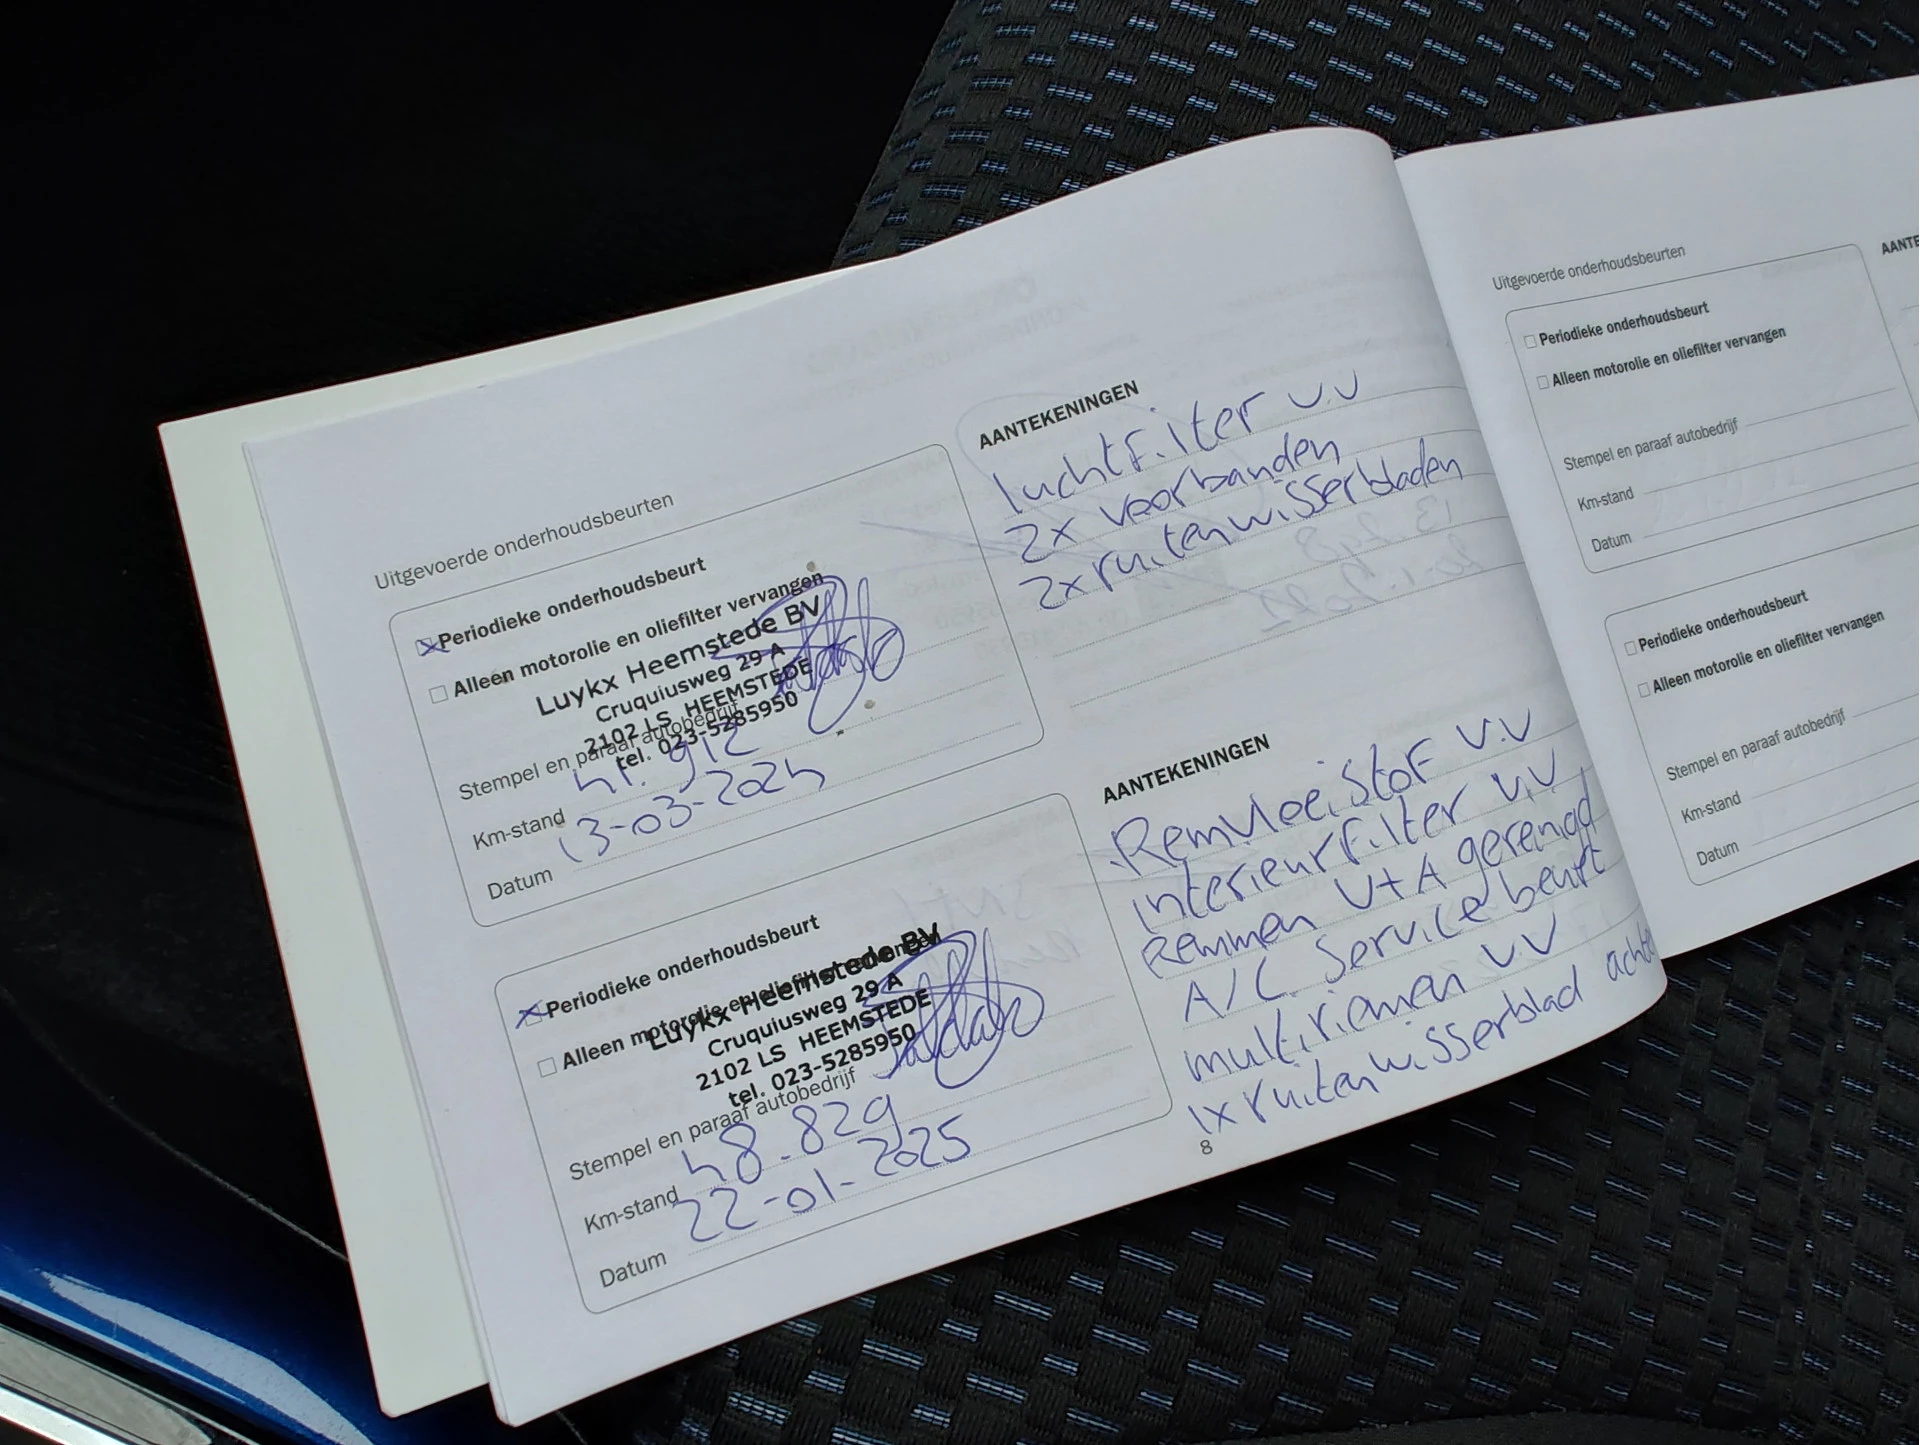 Uitgevoerde onderhoudsbeurten
Periodieke onderhoudsbeurt
Alleen motorolie en oliefilter vervangen
Luykx Heemstede BV
Cruquiusweg 29 A
2102 LS HEEMSTEDE
tel. 023-5285950
Stempel en paraaf autobedrijf
Km-stand 41.912
Datum 13-03-2024
AANTEKENINGEN
luchtfilter v.v
2x voorbanden
2x ruitenwisserbladen
Periodieke onderhoudsbeurt
Alleen motorolie en oliefilter vervangen
Luykx Heemstede BV
Cruquiusweg 29 A
2102 LS HEEMSTEDE
tel. 023-5285950
Stempel en paraaf autobedrijf
Km-stand 48.829
Datum 22-01-2025
AANTEKENINGEN
Remvloeistof v.v
interieurfilter v.v
Remmen V+A gereinigd
A/C Service beurt
multiriemen v.v
1x ruitenwisserblad
8
Uitgevoerde onderhoudsbeurten
Periodieke onderhoudsbeurt
Alleen motorolie en oliefilter vervangen
Stempel en paraaf autobedrijf
Km-stand
Datum
AANTE
Periodieke onderhoudsbeurt
Alleen motorolie en oliefilter vervangen
Stempel en paraaf autobedrijf
Km-stand
Datum